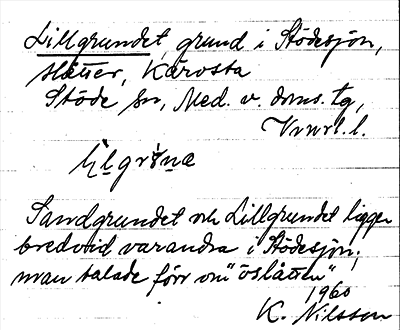 Lillgrundet, grund i Stödesjön,
Slätter, Kärosta
Stöde sn, Med. v. doms. tg,
Vnrl. l.
Sandgrundet och Lillgrundet ligger
bredvid varandra i Stödesjön;
man talade förr om "öslåtten"
1960
K. Nilsson